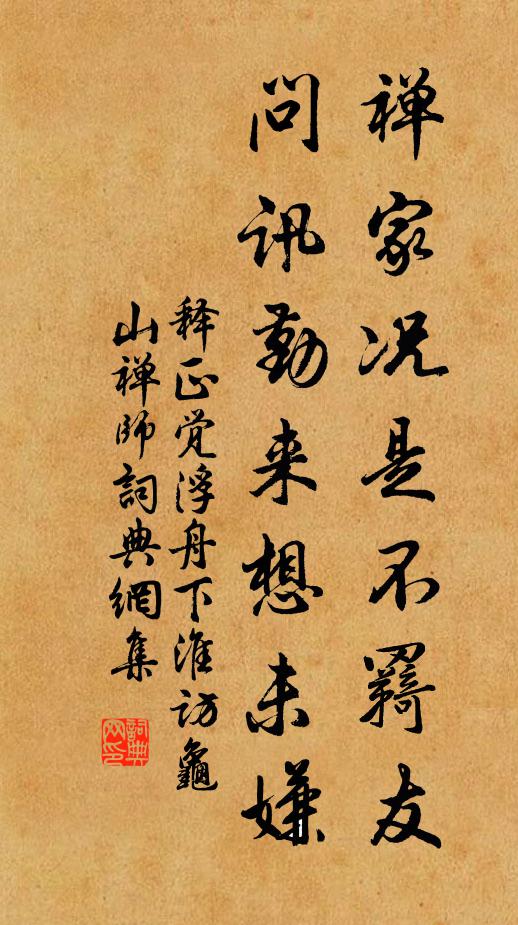 禅家况是不羇友
问讯勤来想未嫌
释正觉浮舟下淮访龜
山禅师詞典網集
詞典网印